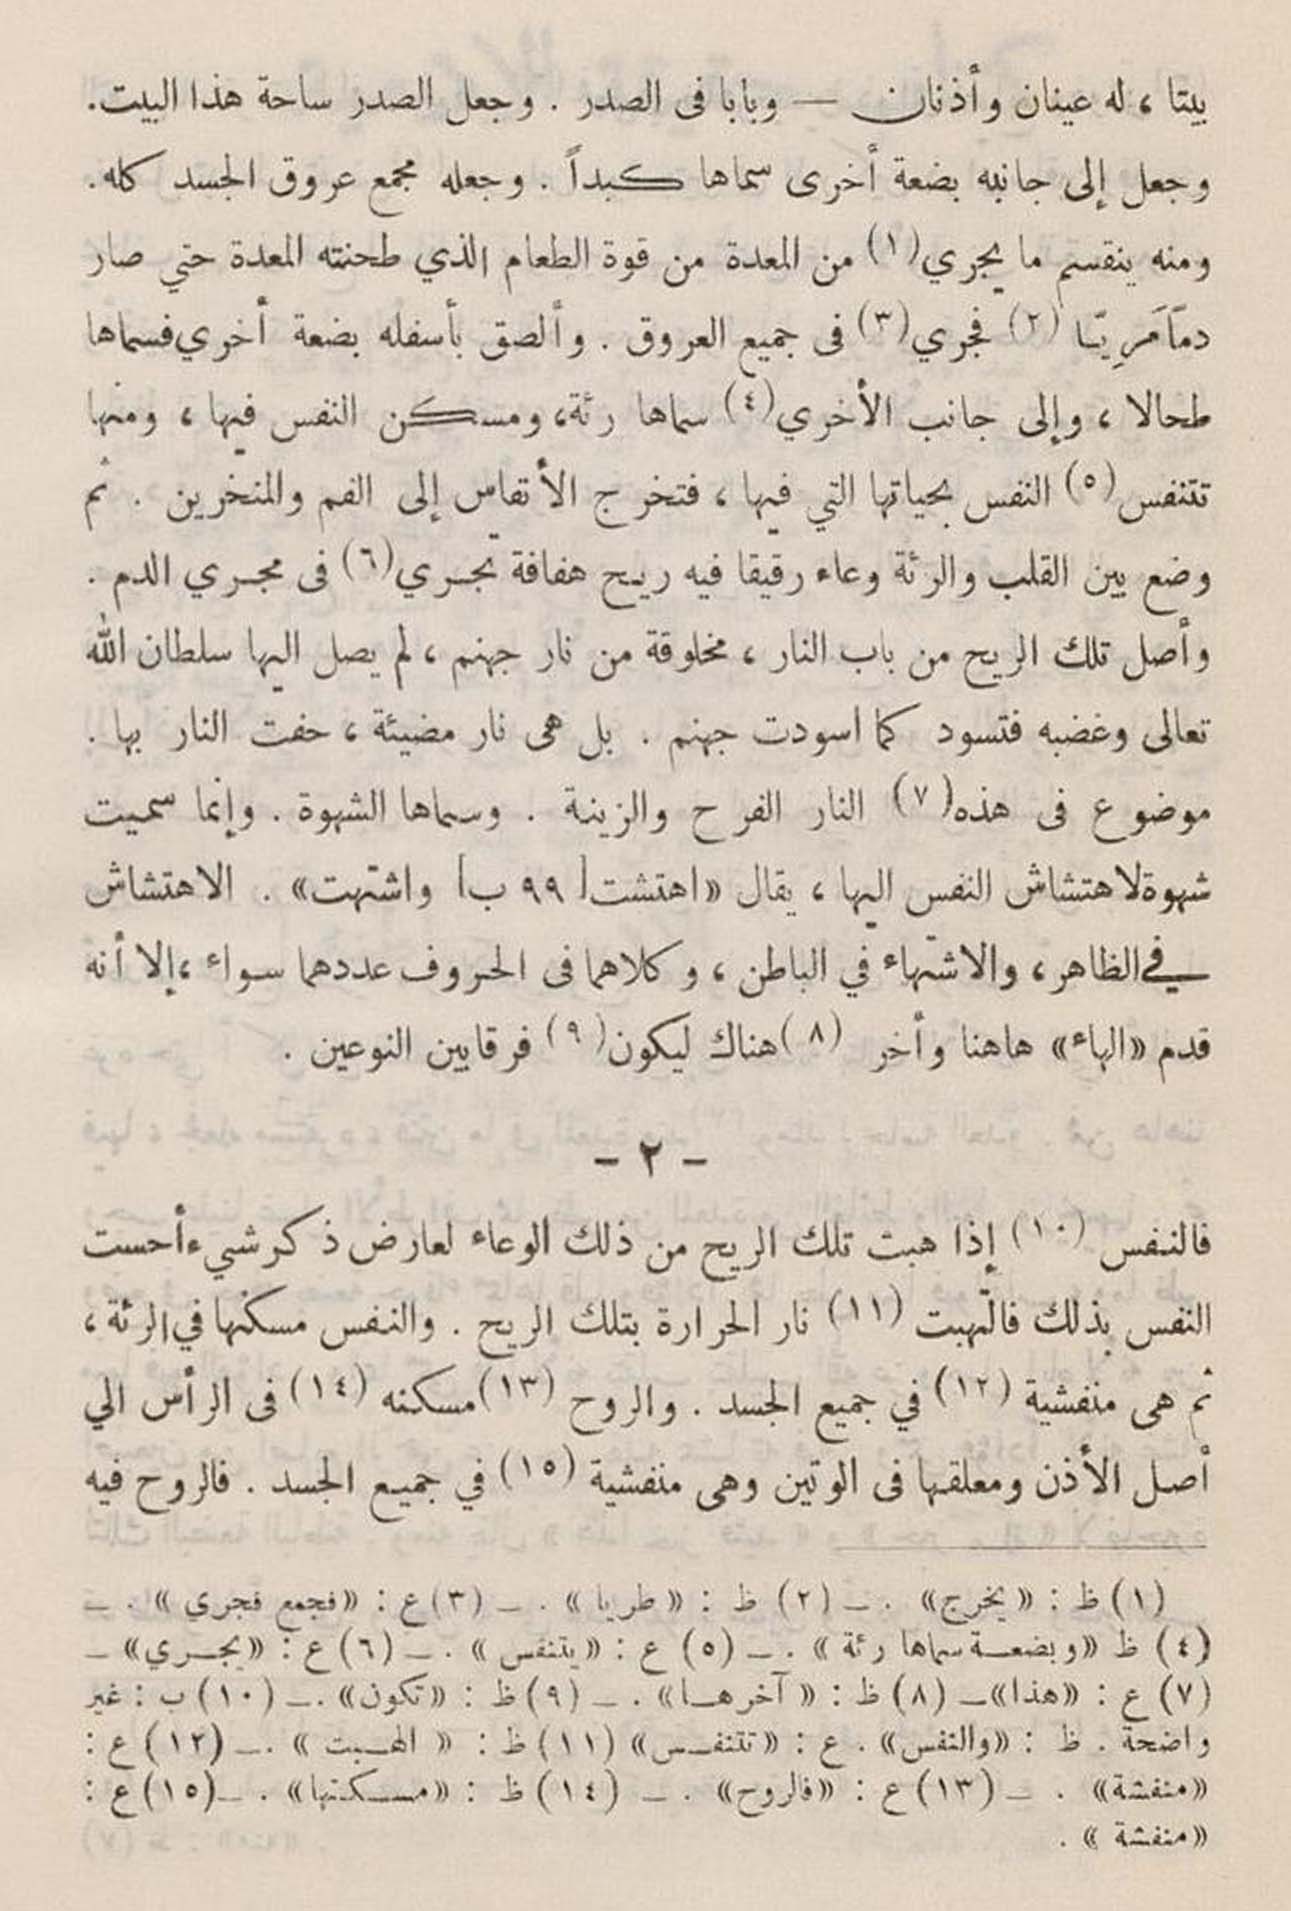 بيتا ، له عينان وأذنان — وبابا فى الصدر . وجعل الصدر ساحة هذا البيت.
وجعل إلى جانبه بضعة أخرى سماها كبداً . وجعله مجمع عروق الجسد كله.
ومنه ينقسم ما يجري(١) من المعدة من قوة الطعام الذي طحنته المعدة حتي صار
دماً مَرِيّا (٢) فجري(٣) فى جميع العروق . وألصق بأسفله بضعة أخري فسماها
طحالا ، وإلى جانب الأخري(٤) سماها رئة، ومسكن النفس فيها ، ومنها
تتنفس(٥) النفس بحياتها التي فيها ، فتخرج الأنفاس إلى الفم والمنخرين . ثم
وضع بين القلب والرئة وعاء رقيقا فيه ريح هفافة تجري(٦) فى مجري الدم .
وأصل تلك الريح من باب النار ، مخلوقة من نار جهنم ، لم يصل اليها سلطان الله
تعالى وغضبه فتسود كما اسودت جهنم . بل هى نار مضيئة ، حفت النار بها .
موضوع فى هذه(٧) النار الفرح والزينة . وسماها الشهوة . وإنما سميت
شهوة لاهتشاش النفس اليها ، يقال «اهتشت[ ٩٩ ب] واشتهت» . الاهتشاش
في الظاهر ، والاشتهاء في الباطن ، وكلاهما فى الحروف عددهما سواء ، إلا أنه
قدم «الهاء» هاهنا وأخر (٨)هناك ليكون(٩) فرقا بين النوعين .
- ٢ -
فالنفس (١٠) إذا هبت تلك الريح من ذلك الوعاء لعارض ذكر شيء أحست
النفس بذلك فالتهبت (١١) نار الحرارة بتلك الريح . والنفس مسكنها في الرئة ،
ثم هى منفشية (١٢) في جميع الجسد . والروح (١٣)مسكنه (١٤) فى الرأس الي
أصل الأذن ومعلقها فى الوتين وهى منفشية (١٥) في جميع الجسد . فالروح فيه
(١) ظ : «يخرج» . — (٢) ظ : «طريا» . — (٣) ع : «فجمع فجري» . —
(٤) ظ «وبضعة سماها رئة» . — (٥) ع : «يتنفس» . — (٦) ع : «يجري» —
(٧) ع : «هذا» — (٨) ظ : «آخرها» . — (٩) ظ : «تكون» . — (١٠) ب : غير
واضحة . ظ : «والنفس» . ع : «تتنفس» (١١) ظ : «الهبت» . — (١٢) ع :
«منفشة» . — (١٣) ع : «فالروح» . — (١٤) ظ : «مسكنها» . — (١٥) ع :
«منفشة» .